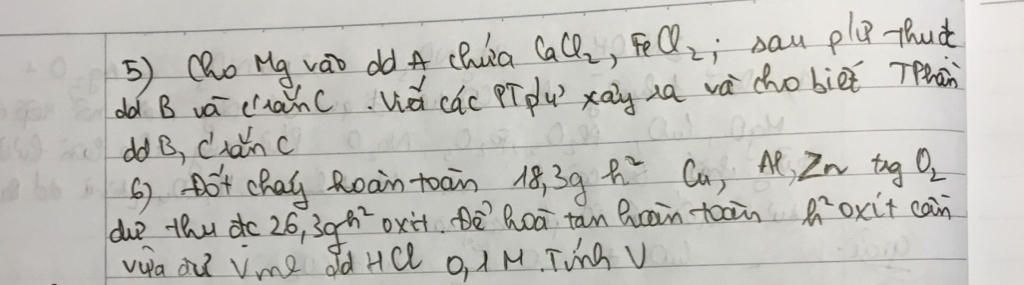 5) Cho Mg vào dd A chứa CaCl₂, FeCl₂; sau pứ thu đc
dd B và c'rắn C. Viết các PT pứ xảy ra và cho biết TPhần
dd B, c'rắn C
6) Đốt cháy hoàn toàn 18,3g h² Cu, Al, Zn tg O₂
dư thu đc 26,3g h² oxit. Để hoà tan hoàn toàn h² oxit cần
vừa đủ V ml dd HCl 0,1 M. Tính V